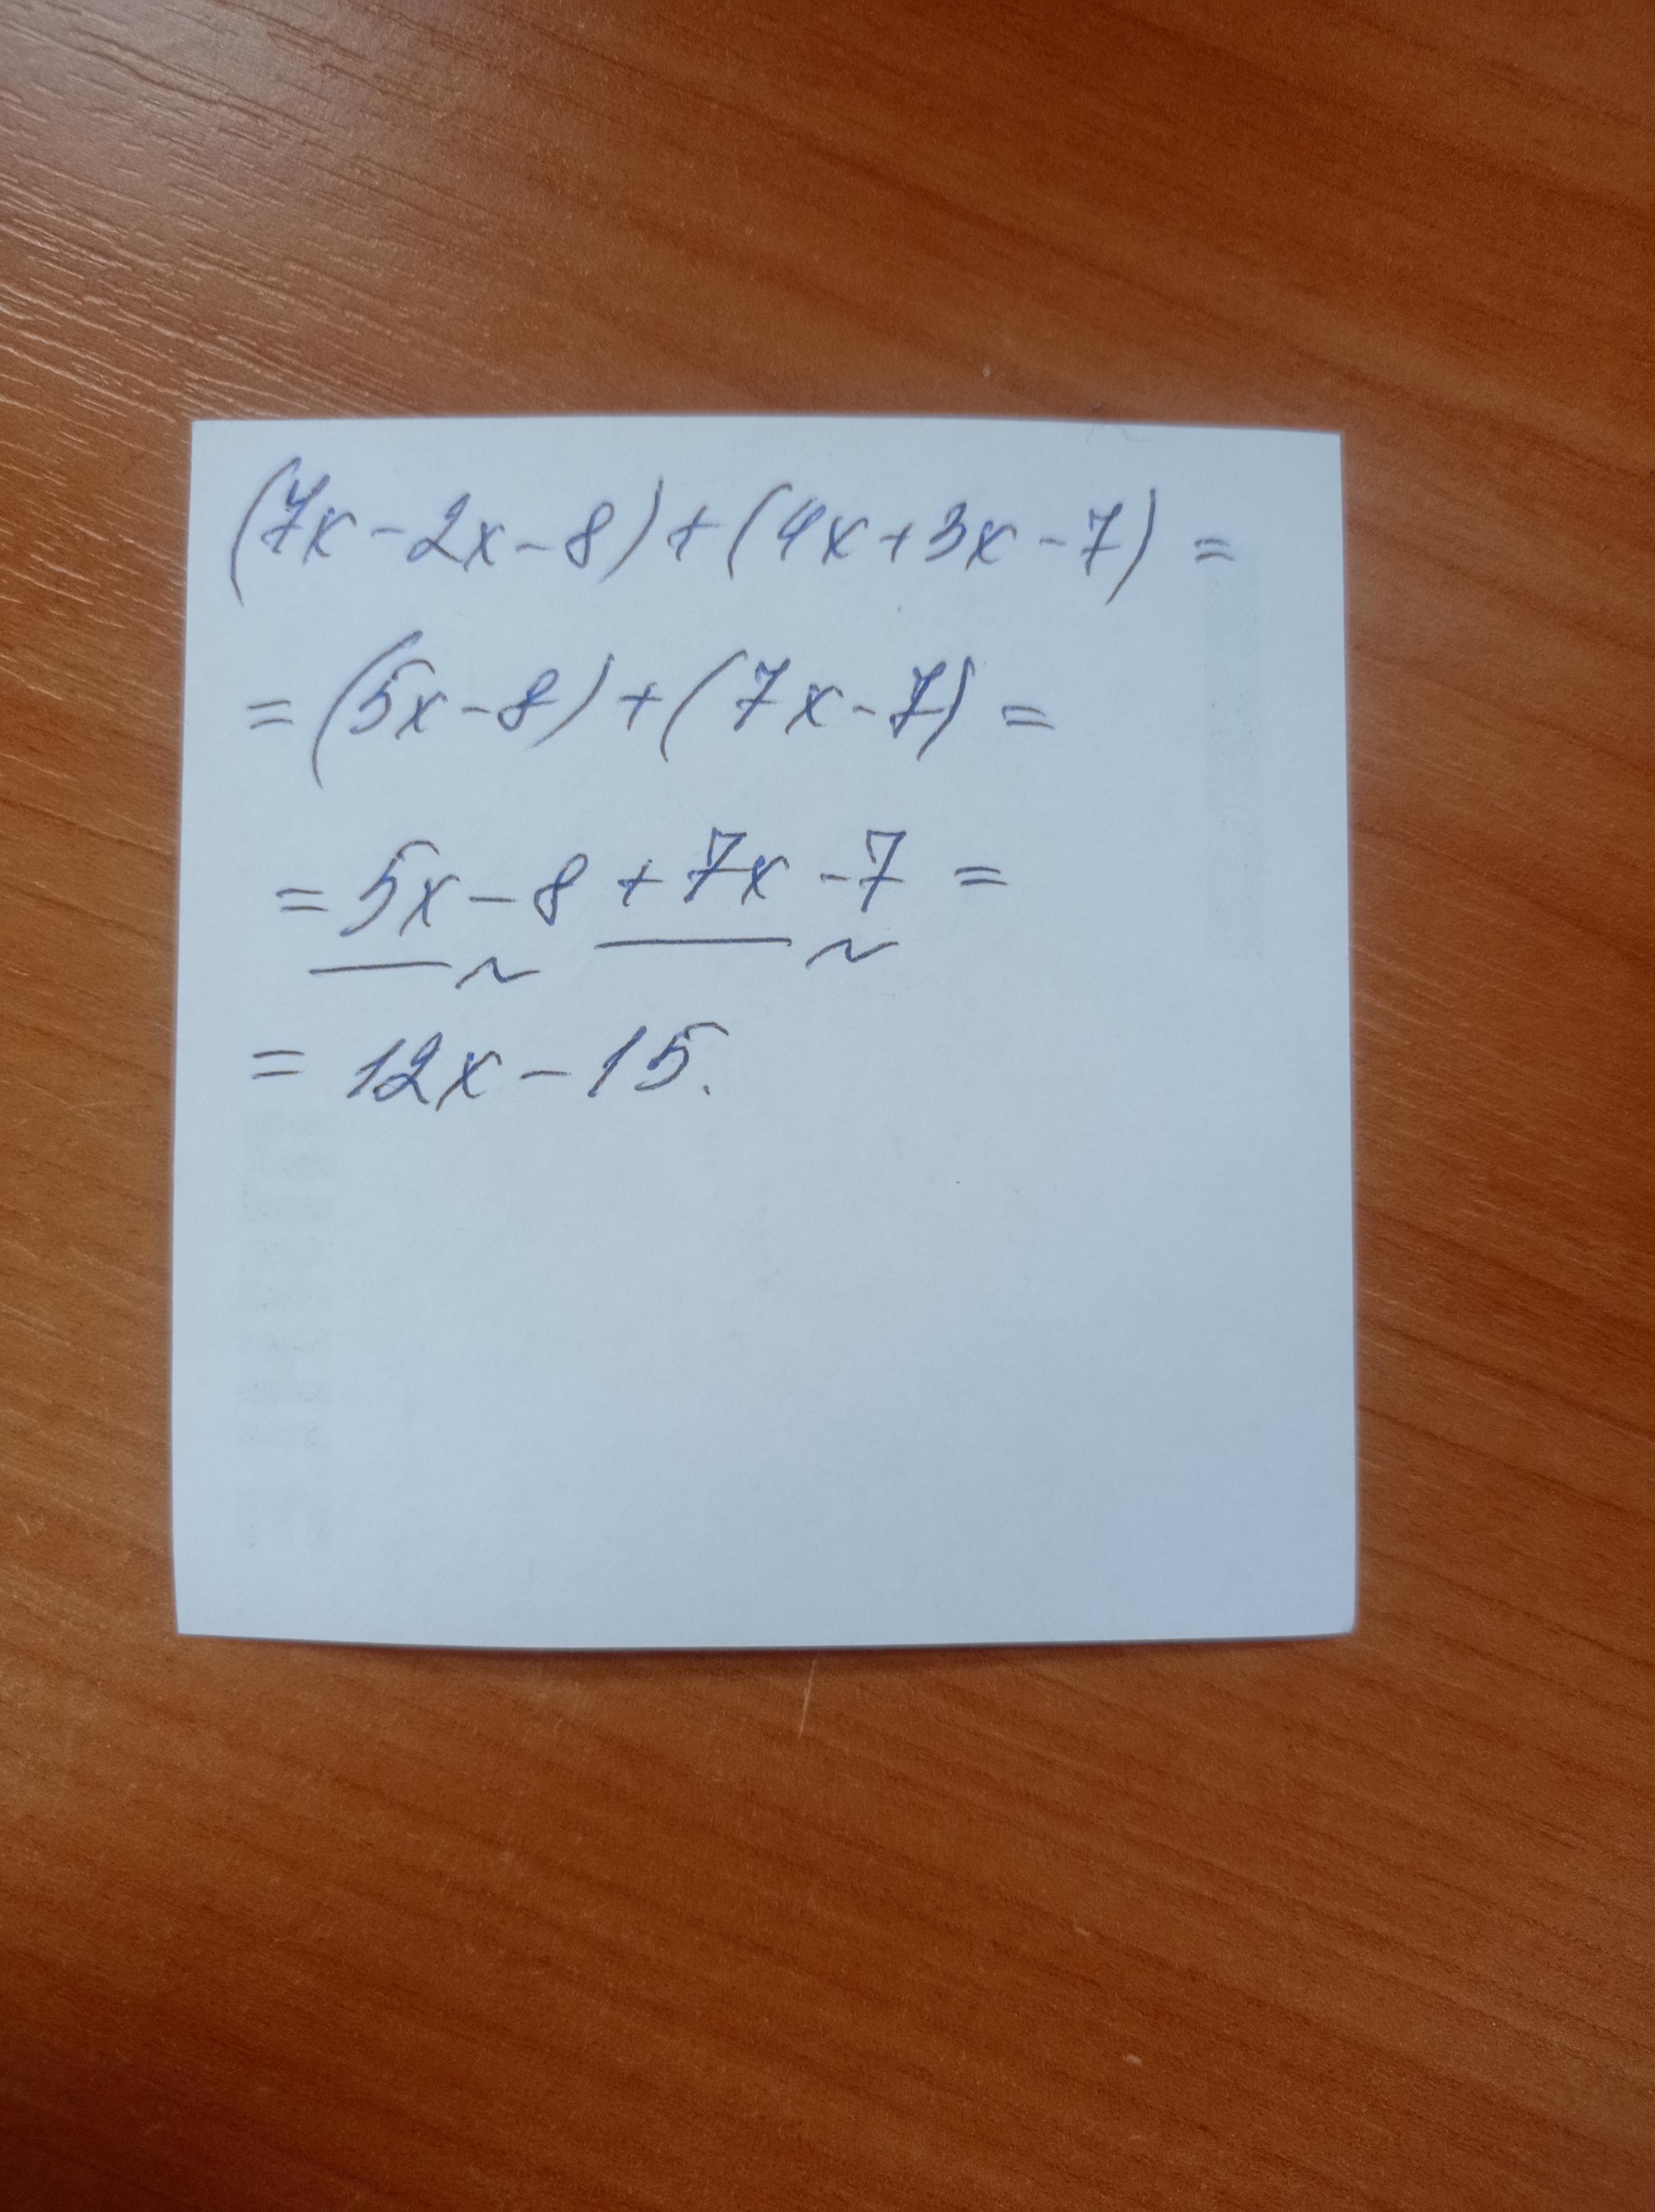 (7x-2x-8)+(4x+3x-7)=
=(5x-8)+(7x-7)=
=5x-8+7x-7=
=12x-15.